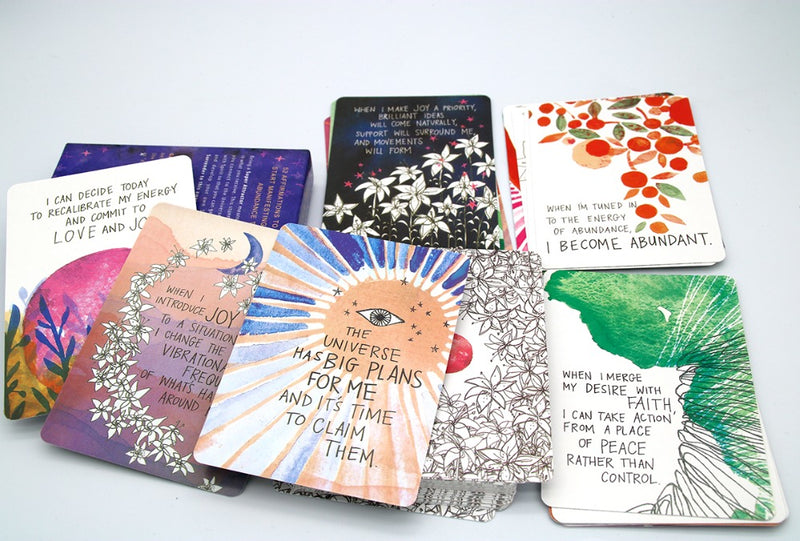 WHEN I MAKE JOY A PRIORITY,
BRILLIANT IDEAS
WILL COME NATURALLY,
SUPPORT WILL SURROUND ME,
AND MOVEMENTS
WILL FORM
WHEN I'M TUNED IN
TO THE ENERGY
OF ABUNDANCE,
I BECOME ABUNDANT.
52 AFFIRMATIONS TO
START MANIFESTING
ABUNDANCE
I CAN DECIDE TODAY
TO RECALIBRATE MY ENERGY
AND COMMIT TO
LOVE AND JO
WHEN I
INTRODUCE JOY
TO A SITUATION
I CHANGE THE
VIBRATIONA
FREQU
OF WHAT'S HA
AROUND
THE
UNIVERSE
HAS BIG PLANS
FOR ME
AND IT'S TIME
TO CLAIM
THEM.
WHEN I MERGE
MY DESIRE WITH
FAITH,
I CAN TAKE ACTION
FROM A PLACE
OF PEACE
RATHER THAN
CONTROL.